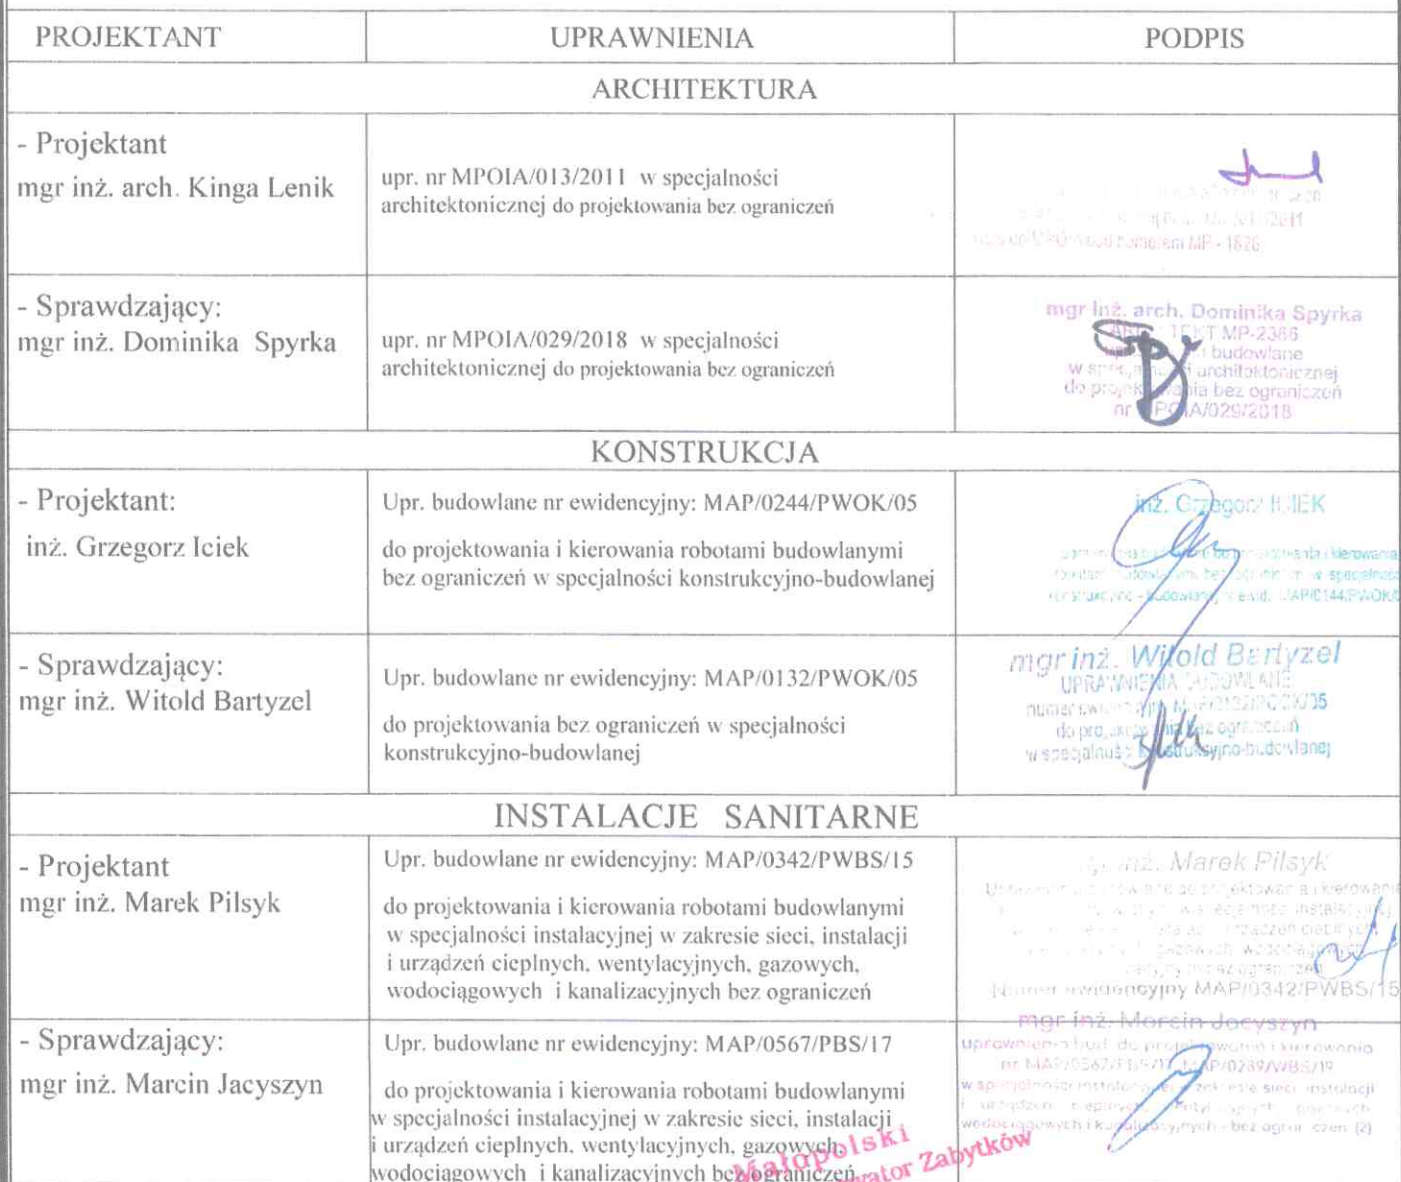 PROJEKTANT UPRAWNIENIA PODPIS
ARCHITEKTURA
- Projektant
mgr inż. arch. Kinga Lenik
upr. nr MPOIA/013/2011 w specjalności
architektonicznej do projektowania bez ograniczeń
numerem MP - 1828
- Sprawdzający:
mgr inż. Dominika Spyrka
upr. nr MPOIA/029/2018 w specjalności
architektonicznej do projektowania bez ograniczeń
mgr inż. arch. Dominika Spyrka
MP-2366
budowlane
architektonicznej
bez ograniczeń
nr MPOIA/029/2018
KONSTRUKCJA
- Projektant:
inż. Grzegorz Iciek
Upr. budowlane nr ewidencyjny: MAP/0244/PWOK/05
do projektowania i kierowania robotami budowlanymi
bez ograniczeń w specjalności konstrukcyjno-budowlanej
inż. Grzegorz ICIEK
i kierowania
w specjalnośc
- Sprawdzający:
mgr inż. Witold Bartyzel
Upr. budowlane nr ewidencyjny: MAP/0132/PWOK/05
do projektowania bez ograniczeń w specjalności
konstrukcyjno-budowlanej
mgr inż. Witold Bartyzel
UPRAWNIENIA BUDOWLANE
bez ograniczeń
w specjalności konstrukcyjno-budowlanej
INSTALACJE SANITARNE
- Projektant
mgr inż. Marek Pilsyk
Upr. budowlane nr ewidencyjny: MAP/0342/PWBS/15
do projektowania i kierowania robotami budowlanymi
w specjalności instalacyjnej w zakresie sieci, instalacji
i urządzeń cieplnych, wentylacyjnych, gazowych,
wodociągowych i kanalizacyjnych bez ograniczeń
inż. Marek Pilsyk
do projektowania i kierowania
Numer ewidencyjny MAP/0342/PWBS/15
- Sprawdzający:
mgr inż. Marcin Jacyszyn
Upr. budowlane nr ewidencyjny: MAP/0567/PBS/17
do projektowania i kierowania robotami budowlanymi
w specjalności instalacyjnej w zakresie sieci, instalacji
i urządzeń cieplnych, wentylacyjnych, gazowych,
wodociągowych i kanalizacyjnych bez ograniczeń
mgr inż. Marcin Jacyszyn
uprawnienia bud. do projektowania i kierowania
nr MAP/0567/PBS/17, MAP/0239/WBS/19
w specjalności instalacyjnej w zakresie sieci instalacji
wodociągowych i kanalizacyjnych - bez ograniczeń (2)
Małopolski
Zabytków